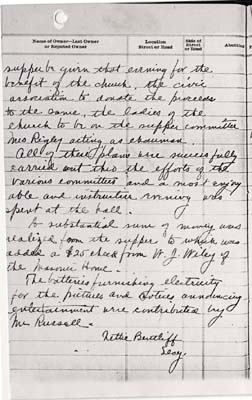 Name of Owner—Last Owner
or Reputed Owner
Location
Street or Road
Side of
Street
or Road
Abutting
supper be given that evening for the
benefit of the church, the civic
association to donate the proceeds
to the same, the ladies of the
church to be on the supper committee
Mrs Rigley acting as chairman.
All of these plans were successfully
carried out thro the efforts of the
various committees and a most enjoy
able and instructive evening was
spent at the hall.
A substantial sum of money was
realized from the supper to which was
added a $25 check from W. J. Wiley of
the Masonic Home.
The batteries furnishing electricity
for the pictures and notices announcing
entertainment were contributed by
Mr. Russell.
Nettie
Secy.